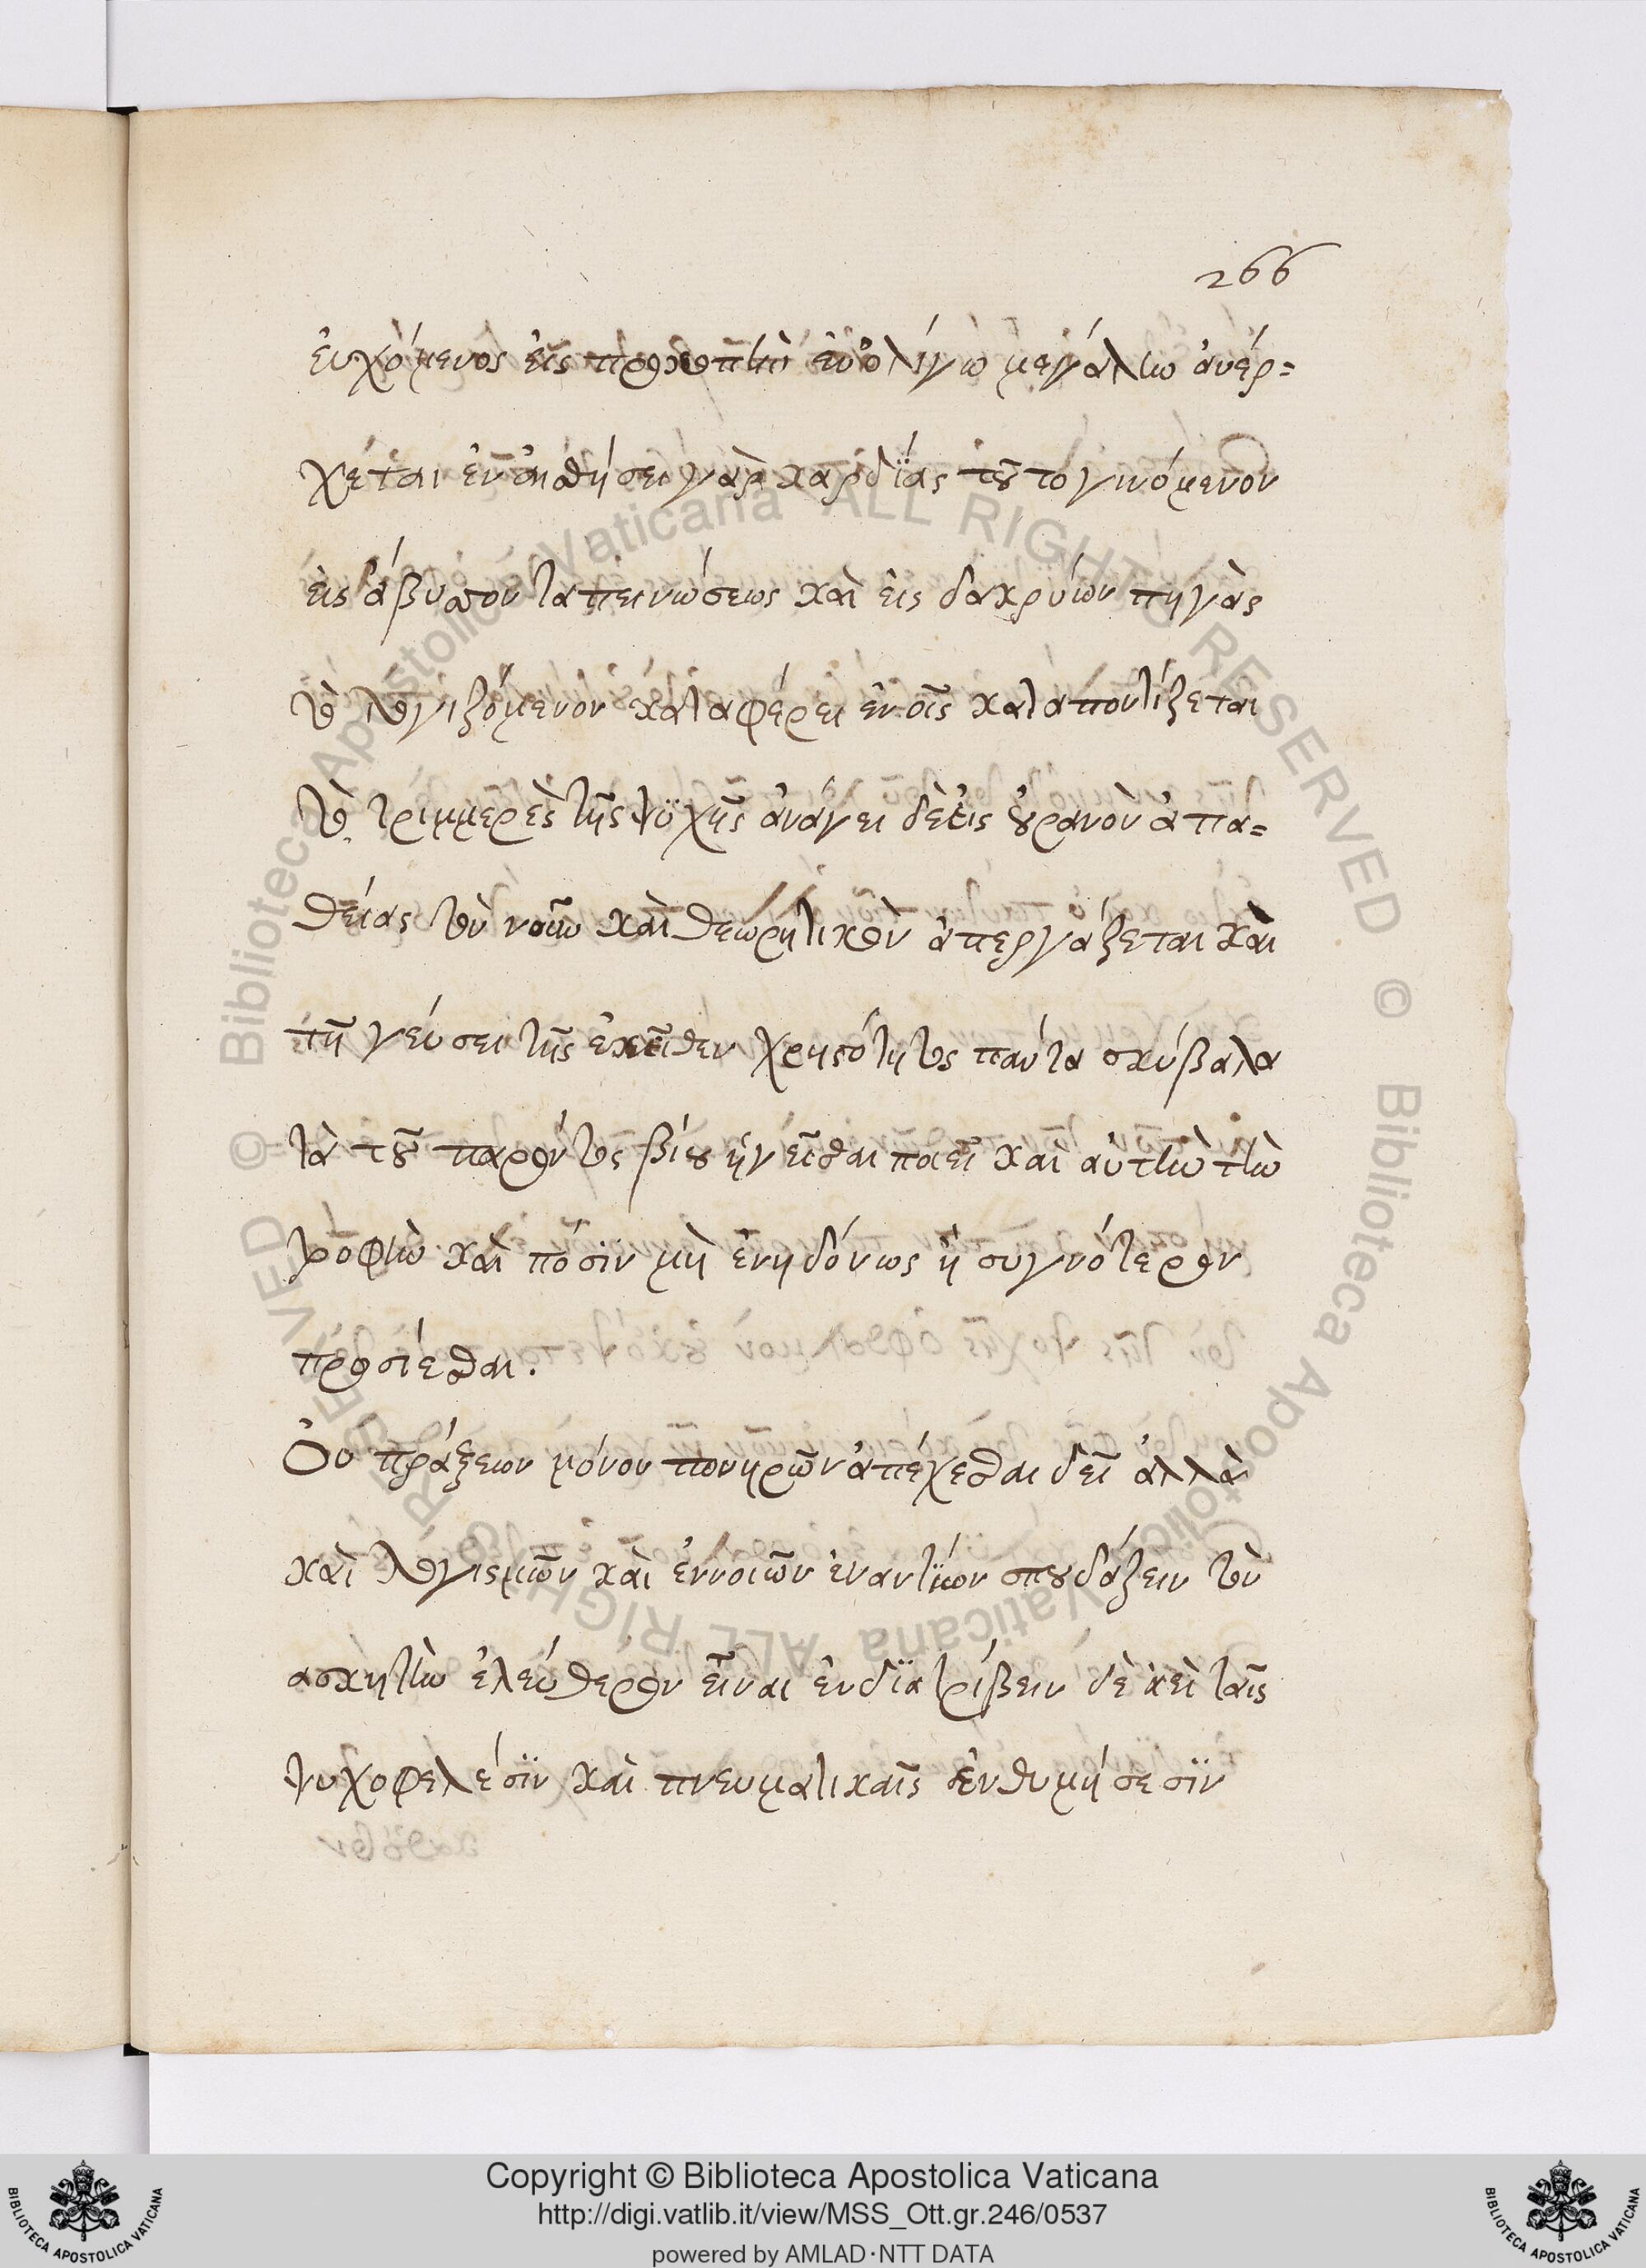 266
ἐυχόμενος ἐις προκοπὴν ἐν ὀλίγω μεγάλην ἀνέρ=
χεται ἐν ἀισθήσει γὰρ καρδΐας τοῦτο γινόμενον
ἐις ἄβυσσον ταπεινώσεως καὶ ἐις δακρύων πηγὰς
τὸ λογιζόμενον καταφέρει ἐν οἷς καταποντίζεται
τὸ τριμμερὲς τῆς ψϋχῆς ἀνάγει δὲ ἐις οὐρανὸν ἀπα=
θείας τὸν νοῦν καὶ θεωρητικὸν ἀπεργάζεται καὶ
τῆ γεύσει τῆς ἐκεῖθεν χρηστότητος πάντα σκύβαλα
τὰ τοῦ παρόντος βίου ἡγεῖσθαι ποιεῖ καὶ ἀυτὴν τὴν
τροφὴν καὶ πόσϊν μὴ ἐνηδόνως ἢ συγνότερον
προσίεσθαι.
Ὀυ πράξεων μόνον πονηρῶν ἀπέχεσθαι δεῖ ἀλλὰ
καὶ λογισμῶν καὶ ἐννοιῶν ἐναντΐων σπουδάζειν τὸν
ασκητὴν ἐλεύθερον εἶναι ἐνδϊατρίβειν δὲ ἀεὶ ταῖς
ψυχοφελέσϊν καὶ πνευματικαῖς ἐνθυμήσεσϊν
Copyright © Biblioteca Apostolica Vaticana
http://digi.vatlib.it/view/MSS_Ott.gr.246/0537
powered by AMLAD·NTT DATA
BIBLIOTECA APOSTOLICA VATICANA
BIBLIOTECA APOSTOLICA VATICANA
© Biblioteca Apostolica Vaticana ALL RIGHTS RESERVED
© Biblioteca Apostolica Vaticana ALL RIGHTS RESERVED